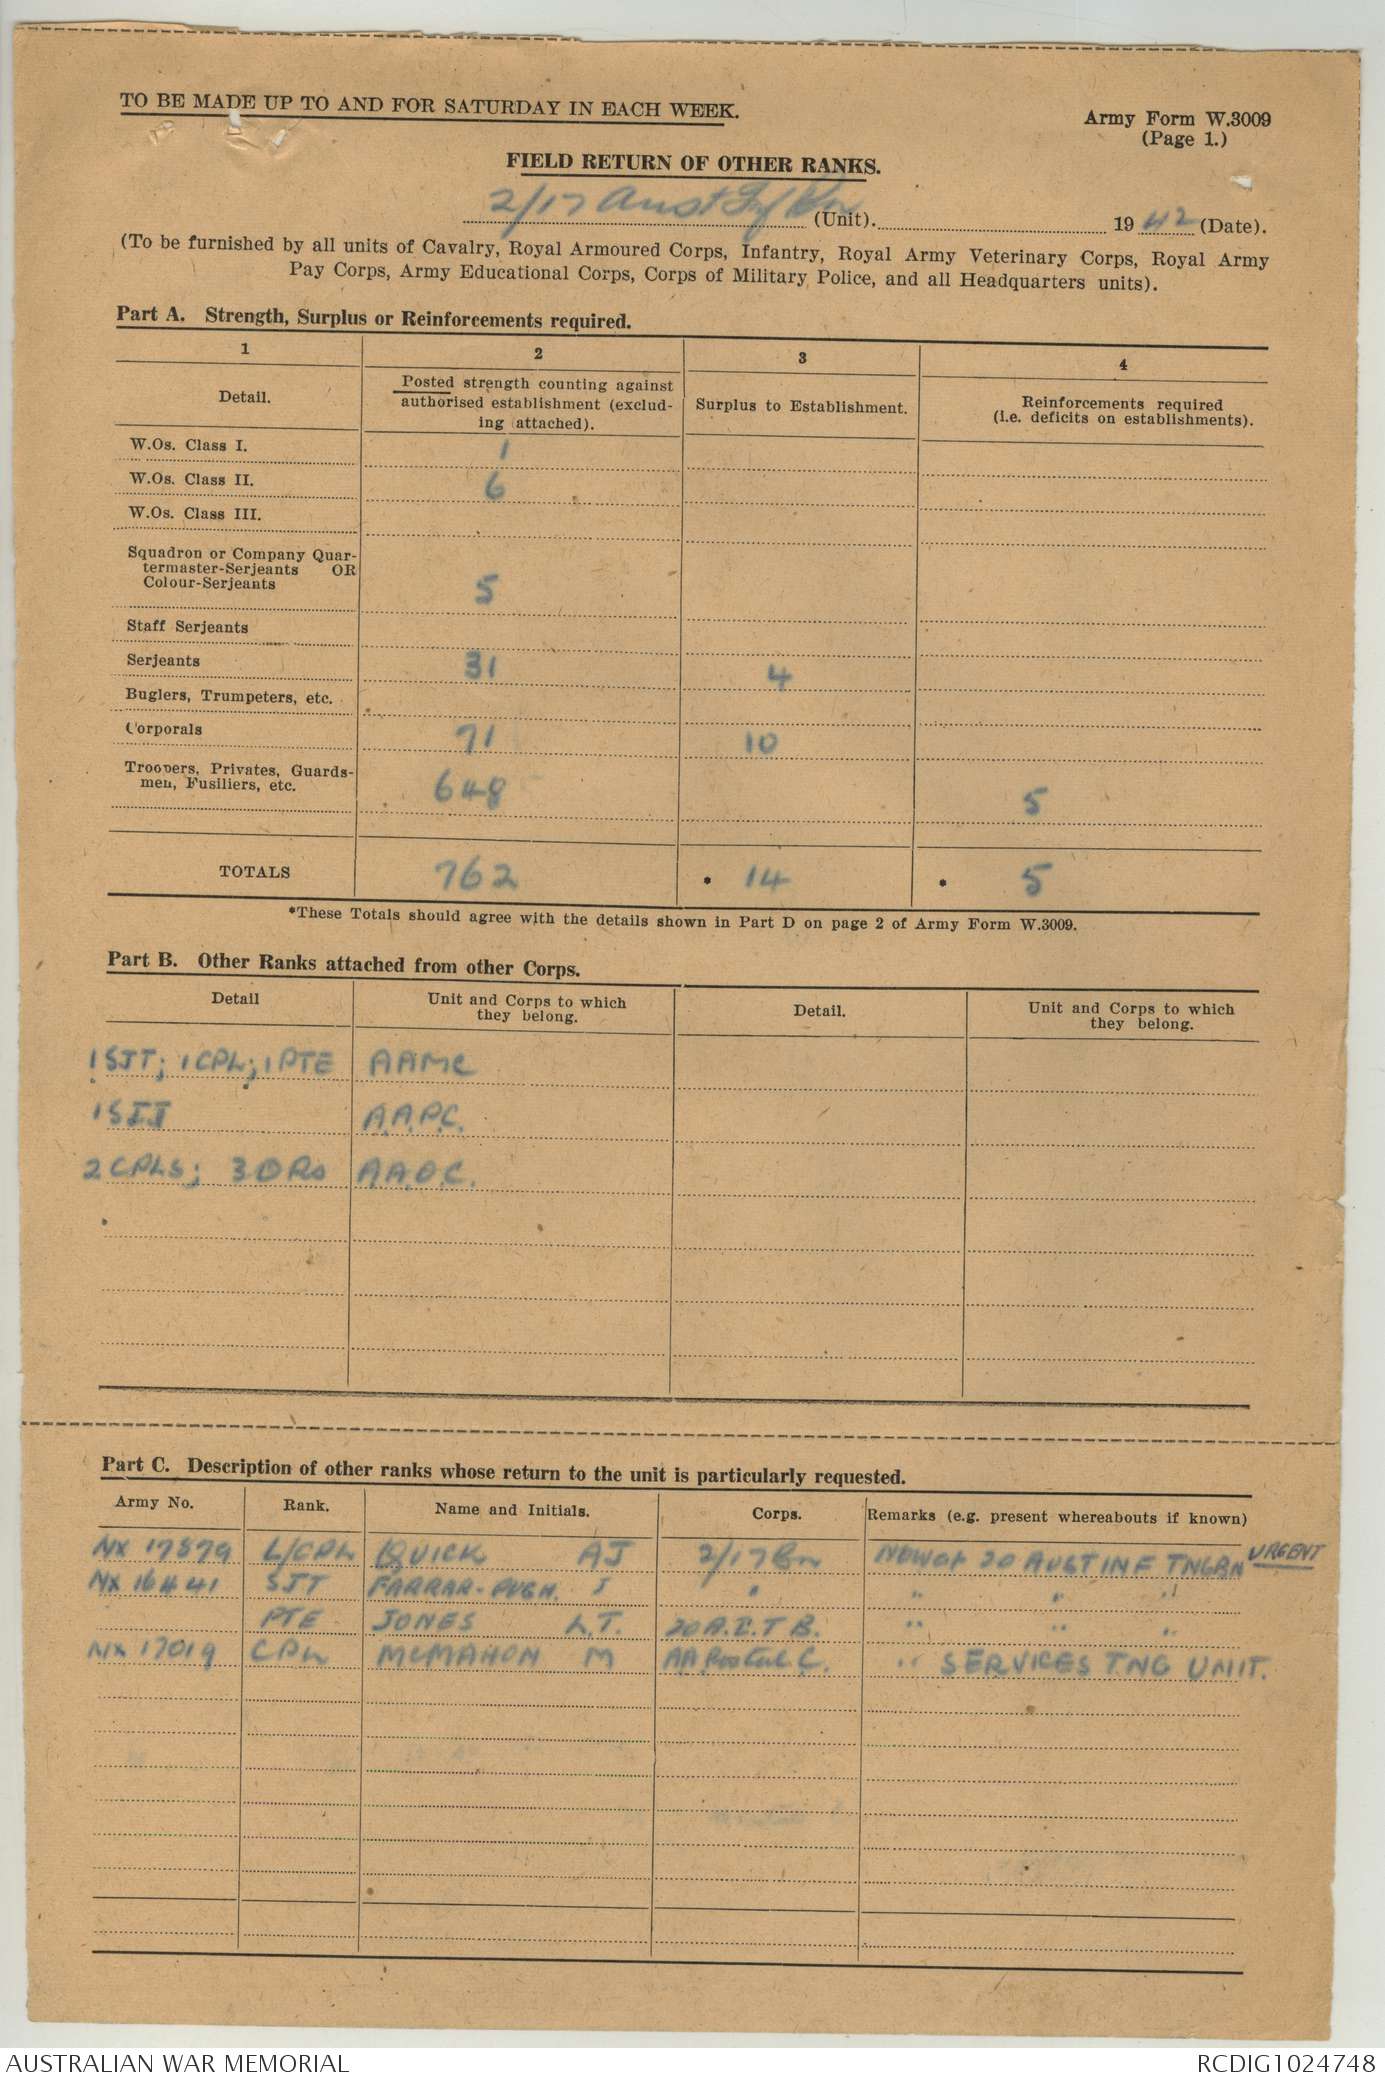 TO BE MADE UP TO AND FOR SATURDAY IN EACH WEEK.
Army Form W.3009
(Page 1.)
FIELD RETURN OF OTHER RANKS.
2/17 Aust Inf Bn (Unit). 1942 (Date).
(To be furnished by all units of Cavalry, Royal Armoured Corps, Infantry, Royal Army Veterinary Corps, Royal Army
Pay Corps, Army Educational Corps, Corps of Military Police, and all Headquarters units).
Part A. Strength, Surplus or Reinforcements required.
1 2 3 4
Detail.
Posted strength counting against
authorised establishment (exclud-
ing (attached).
Surplus to Establishment.
Reinforcements required
(i.e. deficits on establishments).
W.Os. Class I. 1
W.Os. Class II. 6
W.Os. Class III.
Squadron or Company Quar-
termaster-Serjeants OR
Colour-Serjeants 5
Staff Serjeants
Serjeants 31 4
Buglers, Trumpeters, etc.
Corporals 71 10
Troopers, Privates, Guards-
men, Fusiliers, etc. 648 5
TOTALS 762 * 14 * 5
*These Totals should agree with the details shown in Part D on page 2 of Army Form W.3009.
Part B. Other Ranks attached from other Corps.
Detail
Unit and Corps to which
they belong.
Detail.
Unit and Corps to which
they belong.
1 SJT; 1 CPL; 1 PTE AAMC
1 SJT A.A.P.C.
2 CPLS; 3 ORs A.A.O.C.
Part C. Description of other ranks whose return to the unit is particularly requested.
Army No. Rank. Name and Initials. Corps. Remarks (e.g. present whereabouts if known)
NX 17879 L/CPL QUICK AJ 2/17 Bn Now at 20 AUST INF TNG BN URGENT
NX 16441 SJT FARRAR-PUGH. J " " " "
PTE JONES L.T. 20 A.I.T B. " " "
NX 17019 CPL McMAHON M AA Postal C. " SERVICES TNG UNIT.
AUSTRALIAN WAR MEMORIAL
RCDIG1024748